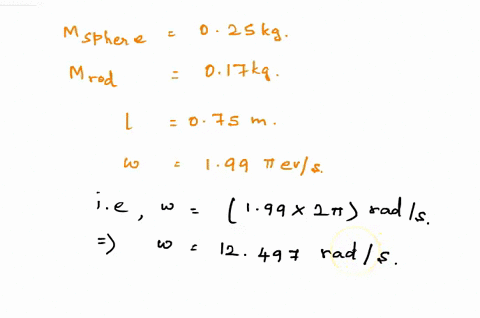 M sphere = 0.25kg.
M rod = 0.17kg.
l = 0.75 m.
ω = 1.99 rev/s.
i.e, ω = (1.99 x 2π) rad/s.
=> ω = 12.497 rad/s.